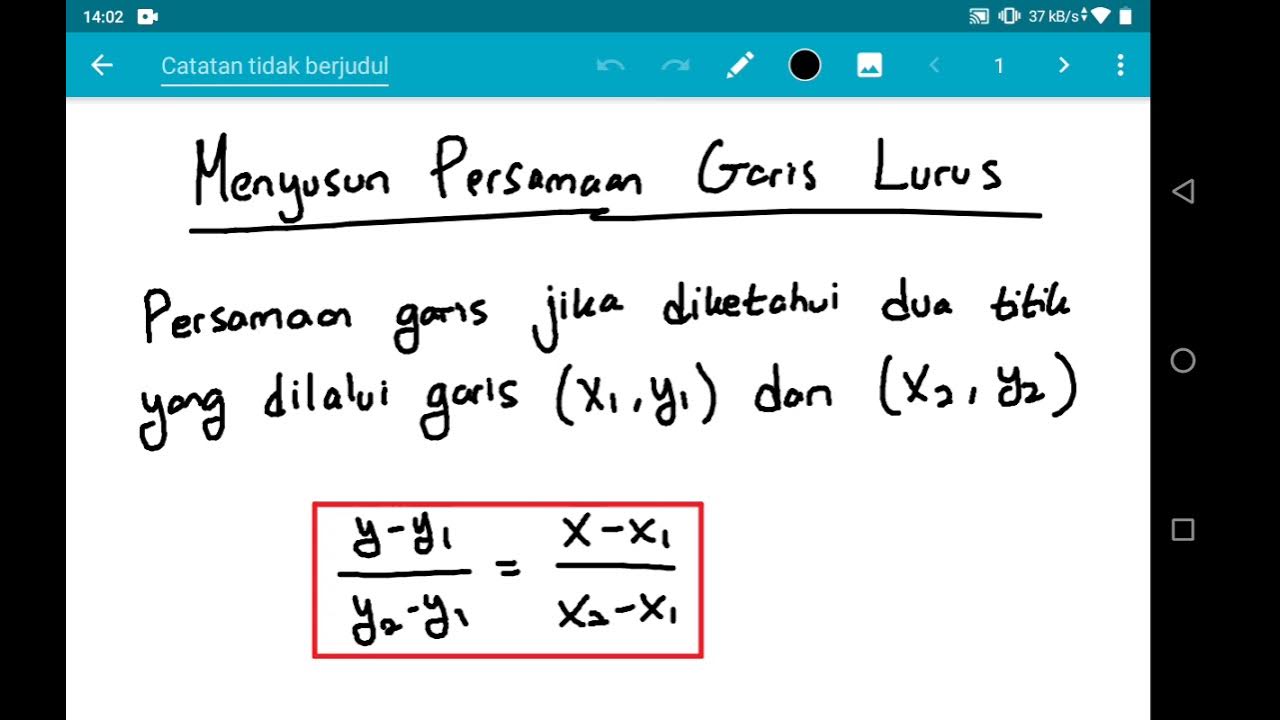 14:02 37 kB/s
Catatan tidak berjudul 1
Menyusun Persamaan Garis Lurus
Persamaan garis jika diketahui dua titik
yang dilalui garis (x₁, y₁) dan (x₂, y₂)
y-y₁ / y₂-y₁ = x-x₁ / x₂-x₁